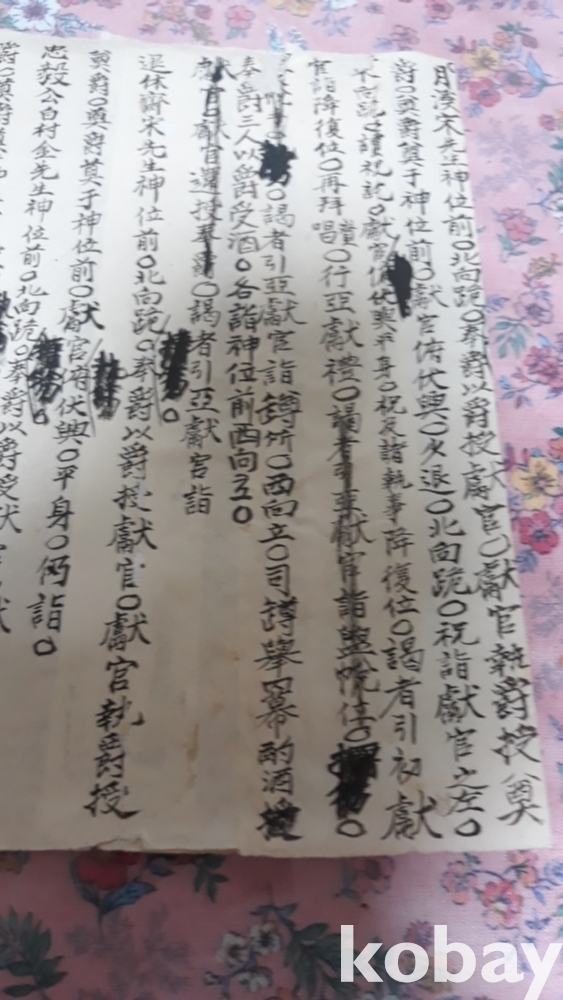 月漢宋先生神位前○北向跪○奉爵以爵授獻官○獻官執爵授奠
爵○奠爵奠于神位前○獻官俯伏興○少退○北向跪○祝詣獻官之左○
向跪○讀祝訖○獻官俯伏興平身○祝及諸執事降復位○謁者引初獻
官詣降復位○再拜○唱○行亞獻禮○謁者引亞獻官詣盥帨位○
○謁者引亞獻官詣罇所○西向立○司罇擧冪酌酒
奉爵三人以爵受酒○各詣神位前西向立○
獻官獻官還授奉爵○謁者引亞獻官詣
退休齋宋先生神位前○北向跪○奉爵以爵授獻官○獻官執爵授
奠爵○奠爵奠于神位前○獻官俯伏興○平身○仍詣○
忠毅公白村金先生神位前○北向跪○奉爵以爵受